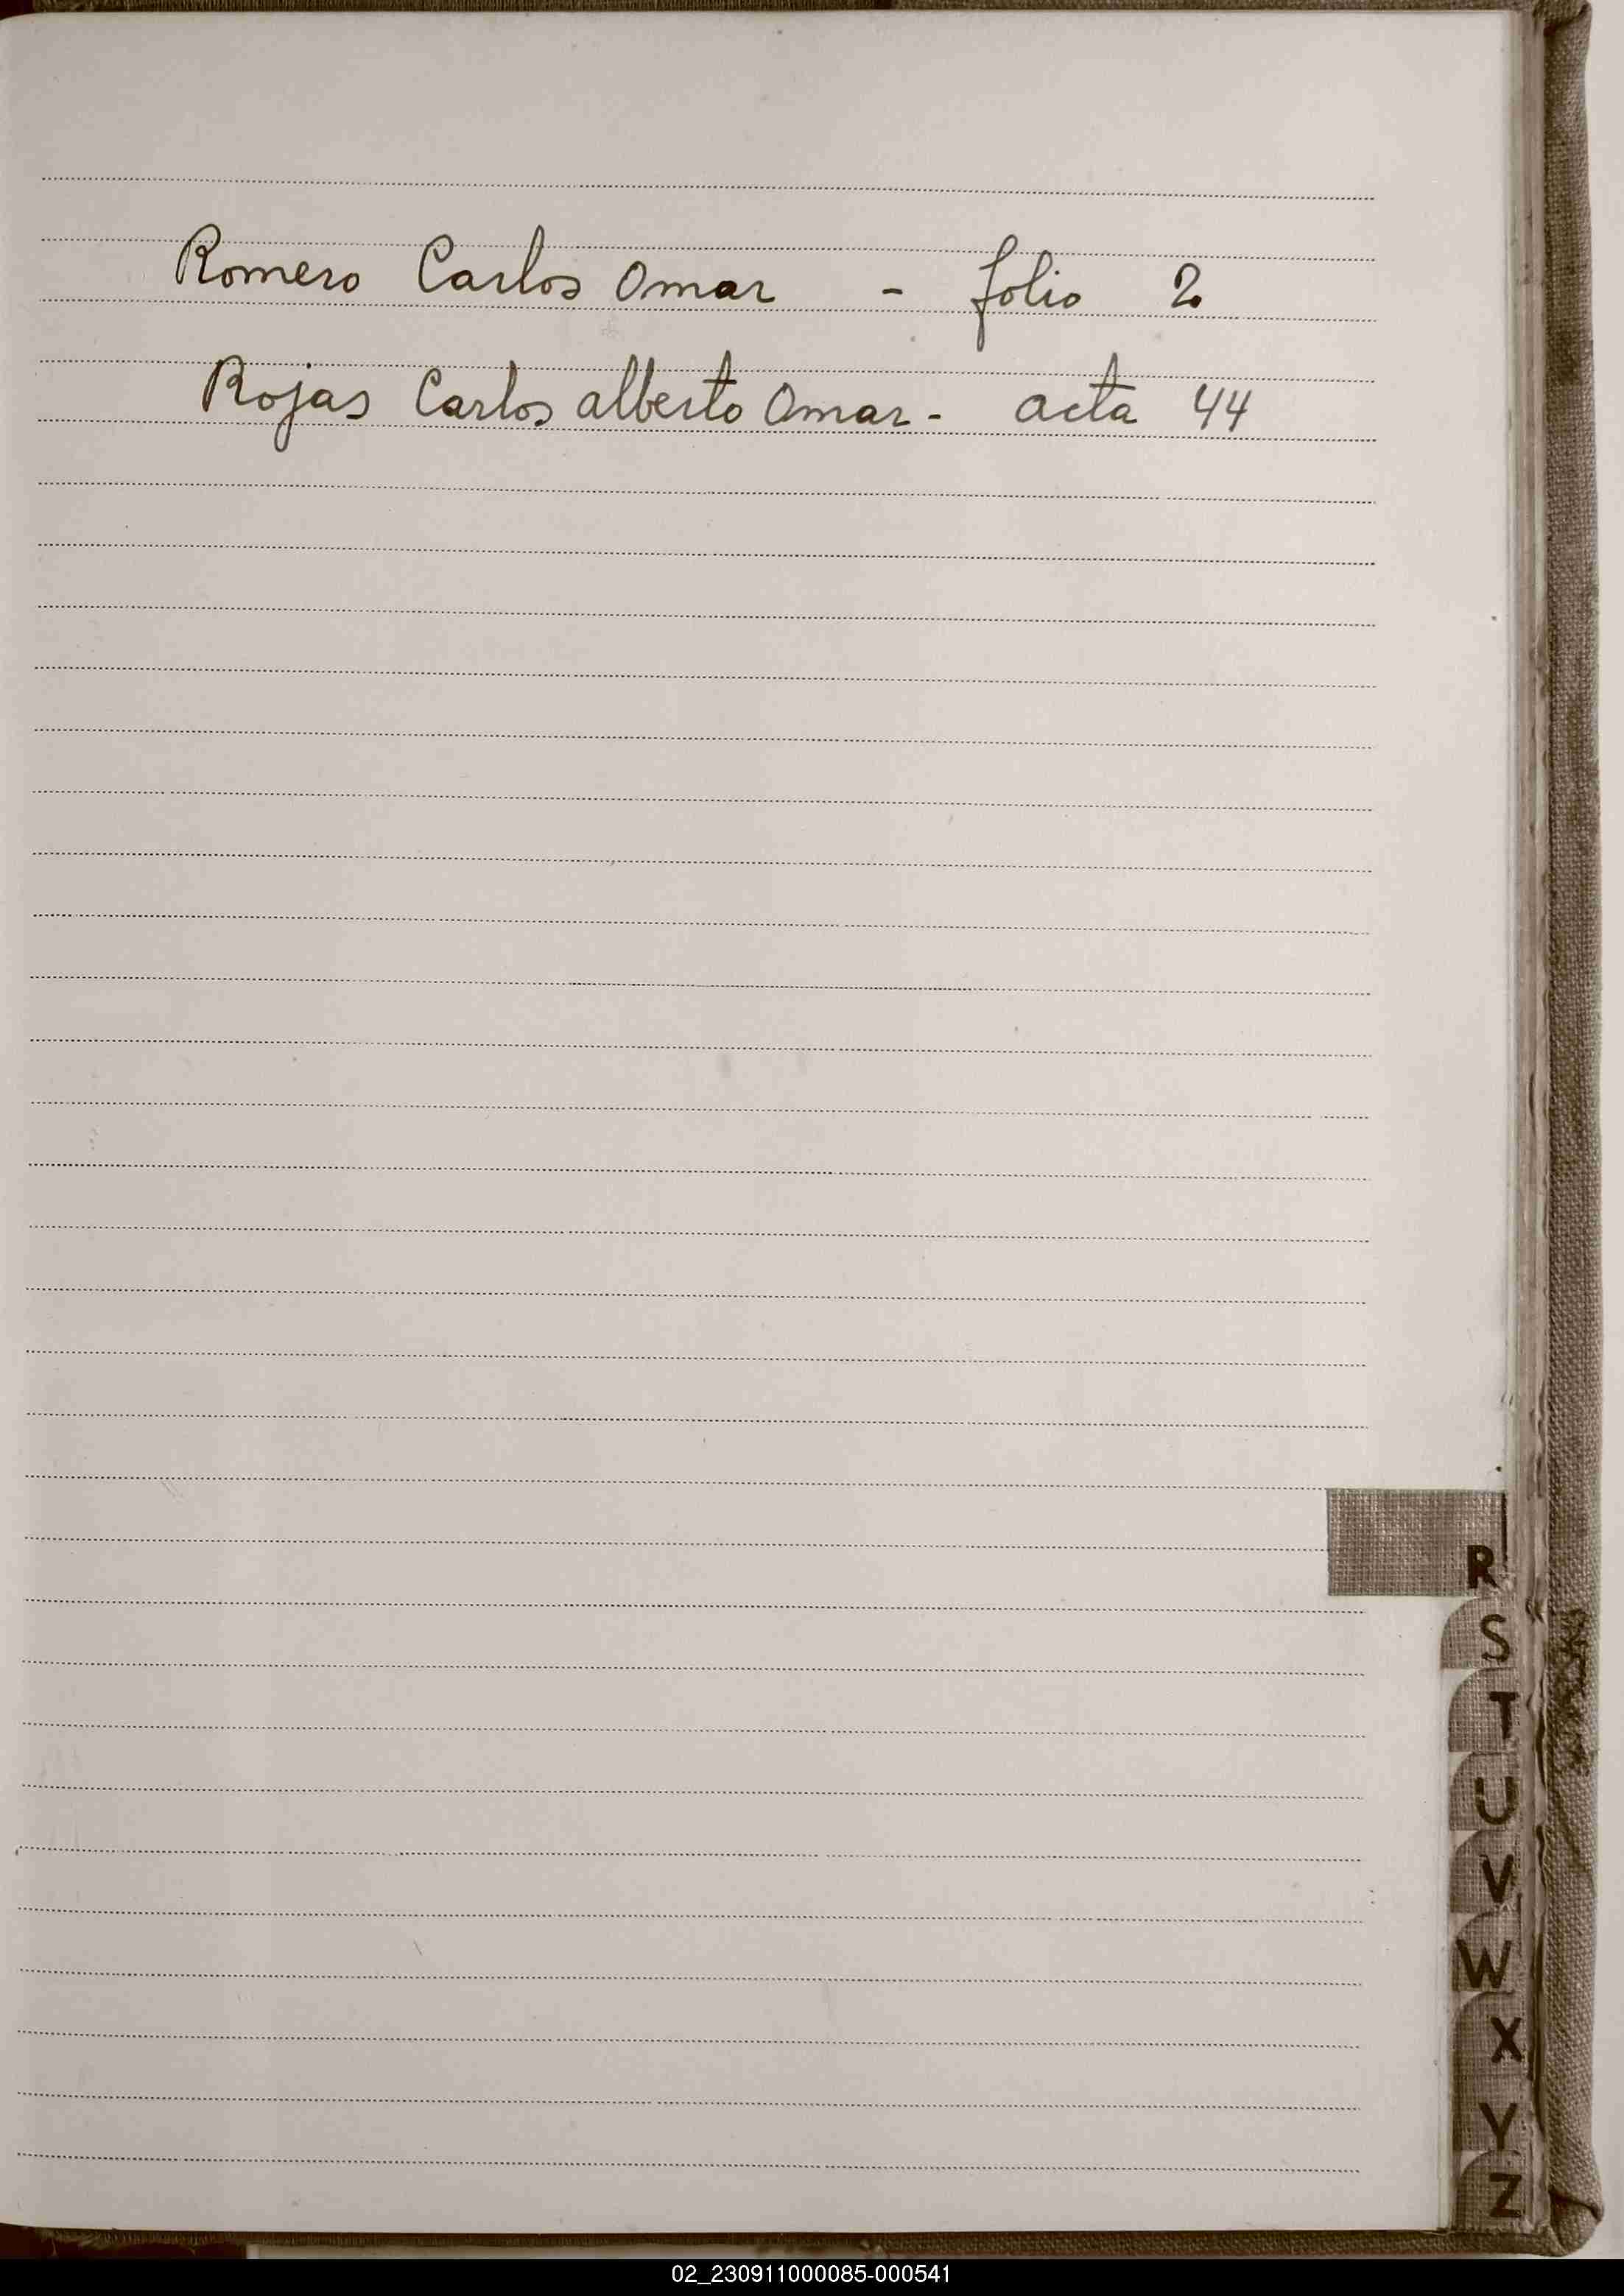 Romero Carlos Omar - folio 2
Rojas Carlos alberto Omar - acta 44
R
S
T
U
V
W
X
Y
Z
02_230911000085-000541